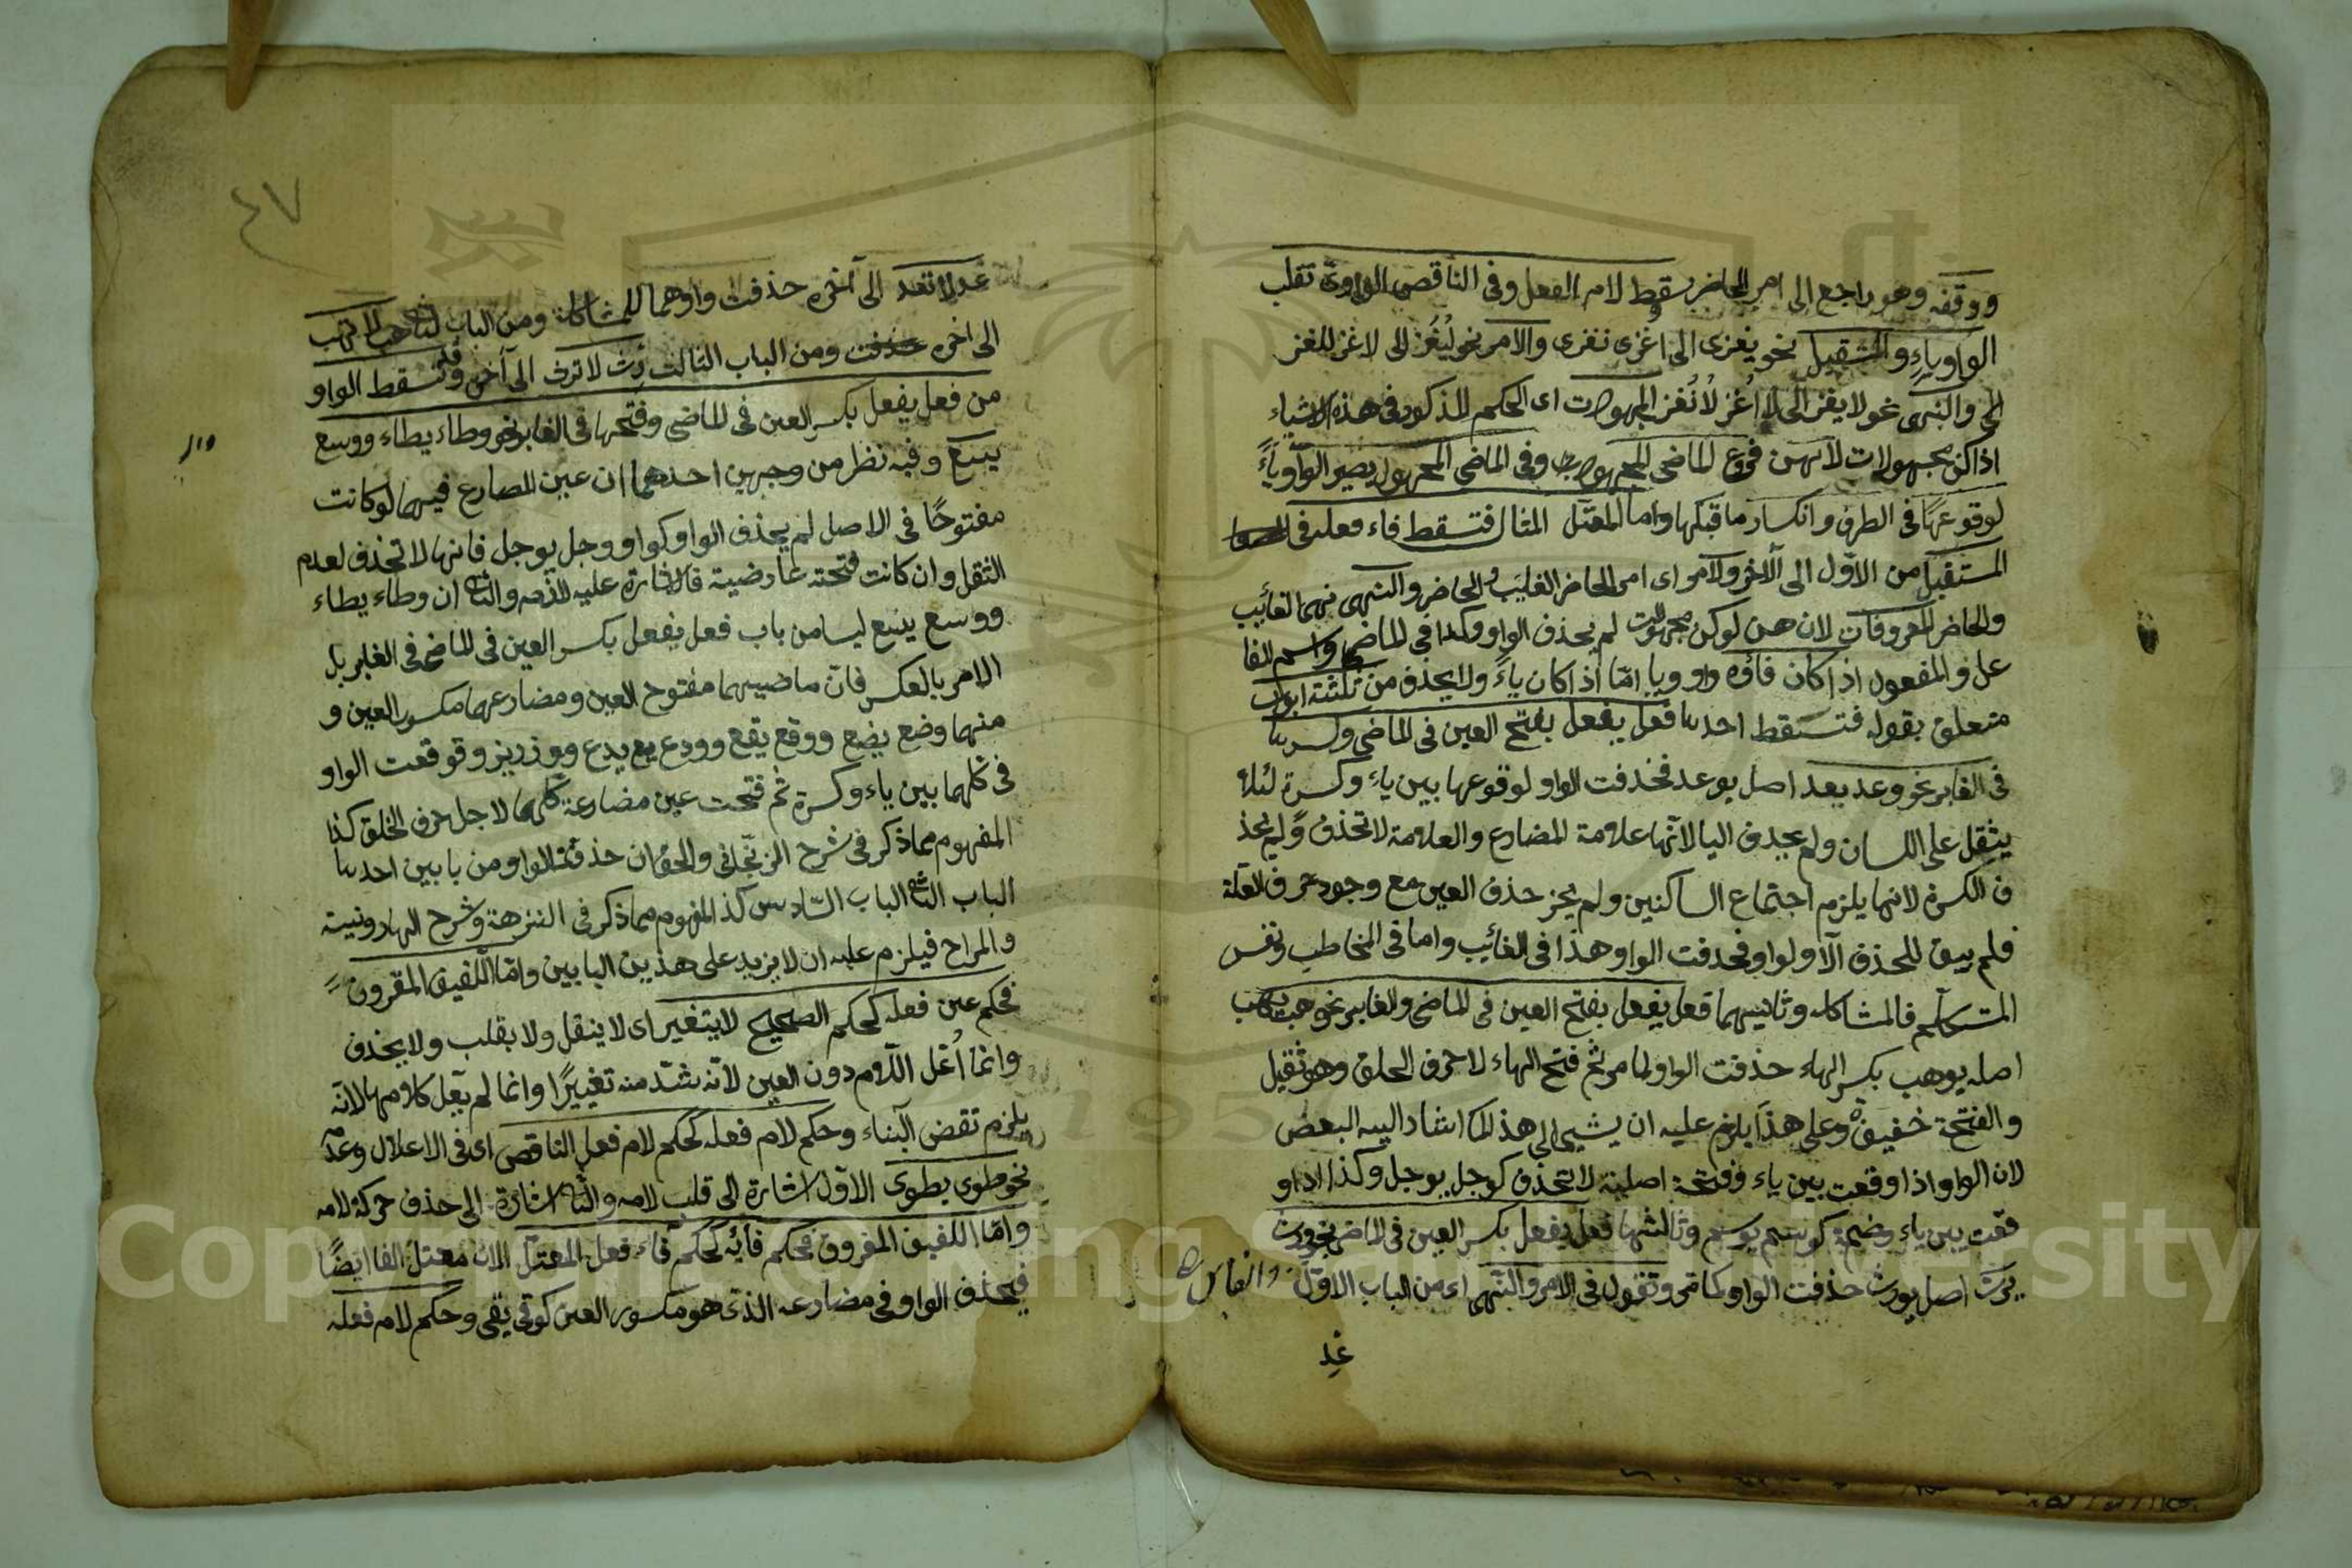 ووقفه وهو راجع الى امر الحاضر سقط لام الفعل وفى الناقص الواوى تقلب
الواو ياء والتثقيل نحو يغزى الى اغزى نغزى والامر نحو ليُغْز الى لاغز للغز
الى والنهى نحو لا يغز الى لا اُغز لا نُغز المجهولات اى الحكم المذكور فى هذه الاشياء
اذا كن مجهولات لانهن فروع الماضى المجهولات وفى الماضى المجهول يصير الواو ياءً
لوقوعها فى الطرف وانكسار ما قبلها واما المعتل المثال فتسقط فاء فعله فى
المستقبل من الاول الى الآخر والامر اى امر الحاضر الغائب والحاضر والنهى نهى الغائب
والحاضر المعروفات لان هن لو كن مجهولات لم يحذف الواو وكذا فى الماضى واسم الفا
عل والمفعول اذا كان فاؤه واو ويا امّا اذا كان ياءً ولا يحذف من ثلثة ابواب
متعلق بقوله فتسقط احديها فعل يفعل بفتح العين فى الماضى وكسرها
فى الغابر نحو وعد يعد اصل يوعد فحذفت الواو لوقوعها بين ياء وكسرة لئلا
يثقل على اللسان ولم يحذف اليا لانها علامة المضارع والعلامة لا تحذف ولم يحذ
ف الكسرة لانها يلزم اجتماع الساكنين ولم يجز حذف العين مع وجود حرف العلة
فلم يبق للحذف الا ولواو فحدفت الواو هذا فى الغائب واما فى المخاطب ونفس
المتكلم فالمشاكلة وثانيهما فعل يفعل بفتح العين فى الماضى والغابر نحو وهب يهب
اصله يوهب بكسر الهاء حذفت الواو لما مر ثم فتح الهاء لاحرف الحلق وهو ثقيل
والفتحة خفيفة وعلى هذا يلزم عليه ان يشير الى هذا لما اشار اليه البعض
لان الواو اذا وقعت بين ياء وفتحة اصلية لا تحذف كوجل يوجل وكذا اذا و
قعت بين ياء وضمة كوسم يوسم وثالثها فعل يفعل بكسر العين فى الماضى نحو ورث
يرث اصل يورث حذفت الواو كما مر وتقول فى الامر والنهى اى من الباب الاول
عد
٤٧
عد لا تعد الى آخره حذفت واوهما للمشاكلة ومن الباب الثانى هب لا تهب
الى اخره حذفت ومن الباب الثالث رث لا ترث الى آخره وقد تسقط الواو
من فعل يفعل بكسر العين فى الماضى وفتحها فى الغابر نحو وطاء يطاء ووسع
يسع وفيه نظر من وجهين احدهما ان عين المضارع فيهما لو كانت
مفتوحًا فى الاصل لم يحذف الواو كواو وجل يوجل فانها لا تحذف لعدم
الثقل وان كانت فتحته عارضية فالاشارة عليه لازمه والثانى ان وطاء يطاء
ووسع يسع ليسا من باب فعل يفعل بكسر العين فى الماضى فى الغابر بل
الامر بالعكس فان ماضيهما مفتوح العين ومضارعهما مكسور العين و
منهما وضع يضع ووقع يقع وودع يدع ووذر يذر وقو قعت الواو
فى كلهما بين ياء وكسرة ثم فتحت عين مضارعة كلهما لاجل حرف الحلق كذا
المفهوم مما ذكر فى شرح الزنجانى والحق ان حذفت الواو من بابين احديها
الباب الثانى الباب السادس كذا المفهوم مما ذكر فى النزهة وشرح الهارونية
والمراح فيلزم عليه ان لا يزيد على هذين البابين وامّا اللفيف المقرون
فحكم عين فعله كحكم الصحيح لا يتغير اى لا ينقل ولا يقلب ولا يحذف
وانما اُعل اللام دون العين لانه شد منه تغييرًا وانما لم يعل كلامهما لانه
يلزم نقض البناء وحكم لام فعله كحكم لام فعل الناقص اى فى الاعلال وعدمه
نحو طوى يطوى الاول اشارة الى قلب لامه والثانى اشارة الى حذف حركة لامه
وامّا اللفيف المفروق فحكم فائه كحكم فاء فعل المعتل لان معتل الفا ايضًا
فيحذف الواو فى مضارعه الذى هو مكسور العين كوقى يقى وحكم لام فعله
Copyright © King Saud University
1957